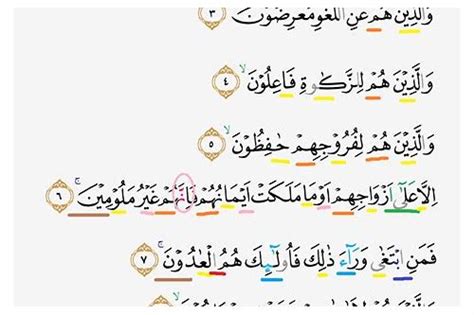 وَالَّذِيْنَ هُمْ عَنِ اللَّغْوِ مُعْرِضُوْنَ ٣
وَالَّذِيْنَ هُمْ لِلزَّكٰوةِ فَاعِلُوْنَ ۙ ٤
وَالَّذِيْنَ هُمْ لِفُرُوْجِهِمْ حٰفِظُوْنَ ۙ ٥
اِلَّا عَلٰٓى اَزْوَاجِهِمْ اَوْ مَا مَلَكَتْ اَيْمَانُهُمْ فَاِنَّهُمْ غَيْرُ مَلُوْمِيْنَ ۚ ٦
فَمَنِ ابْتَغٰى وَرَاۤءَ ذٰلِكَ فَاُولٰۤىِٕكَ هُمُ الْعٰدُوْنَ ۚ ٧